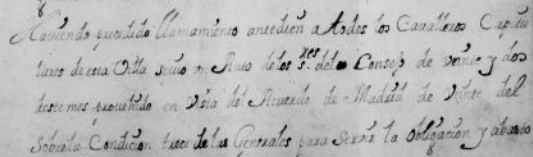 Haviendo precedido llamamiento antedien a todos los Cavalleros Capitu
lares de esta Villa se vio un Auto de los s.res del Consejo de veinte y dos
deste mes provehido en vista del Acuerdo de Madrid de veinte del
Sobre la Condicion trece de las Generales para Servir la Obligacion y abasto